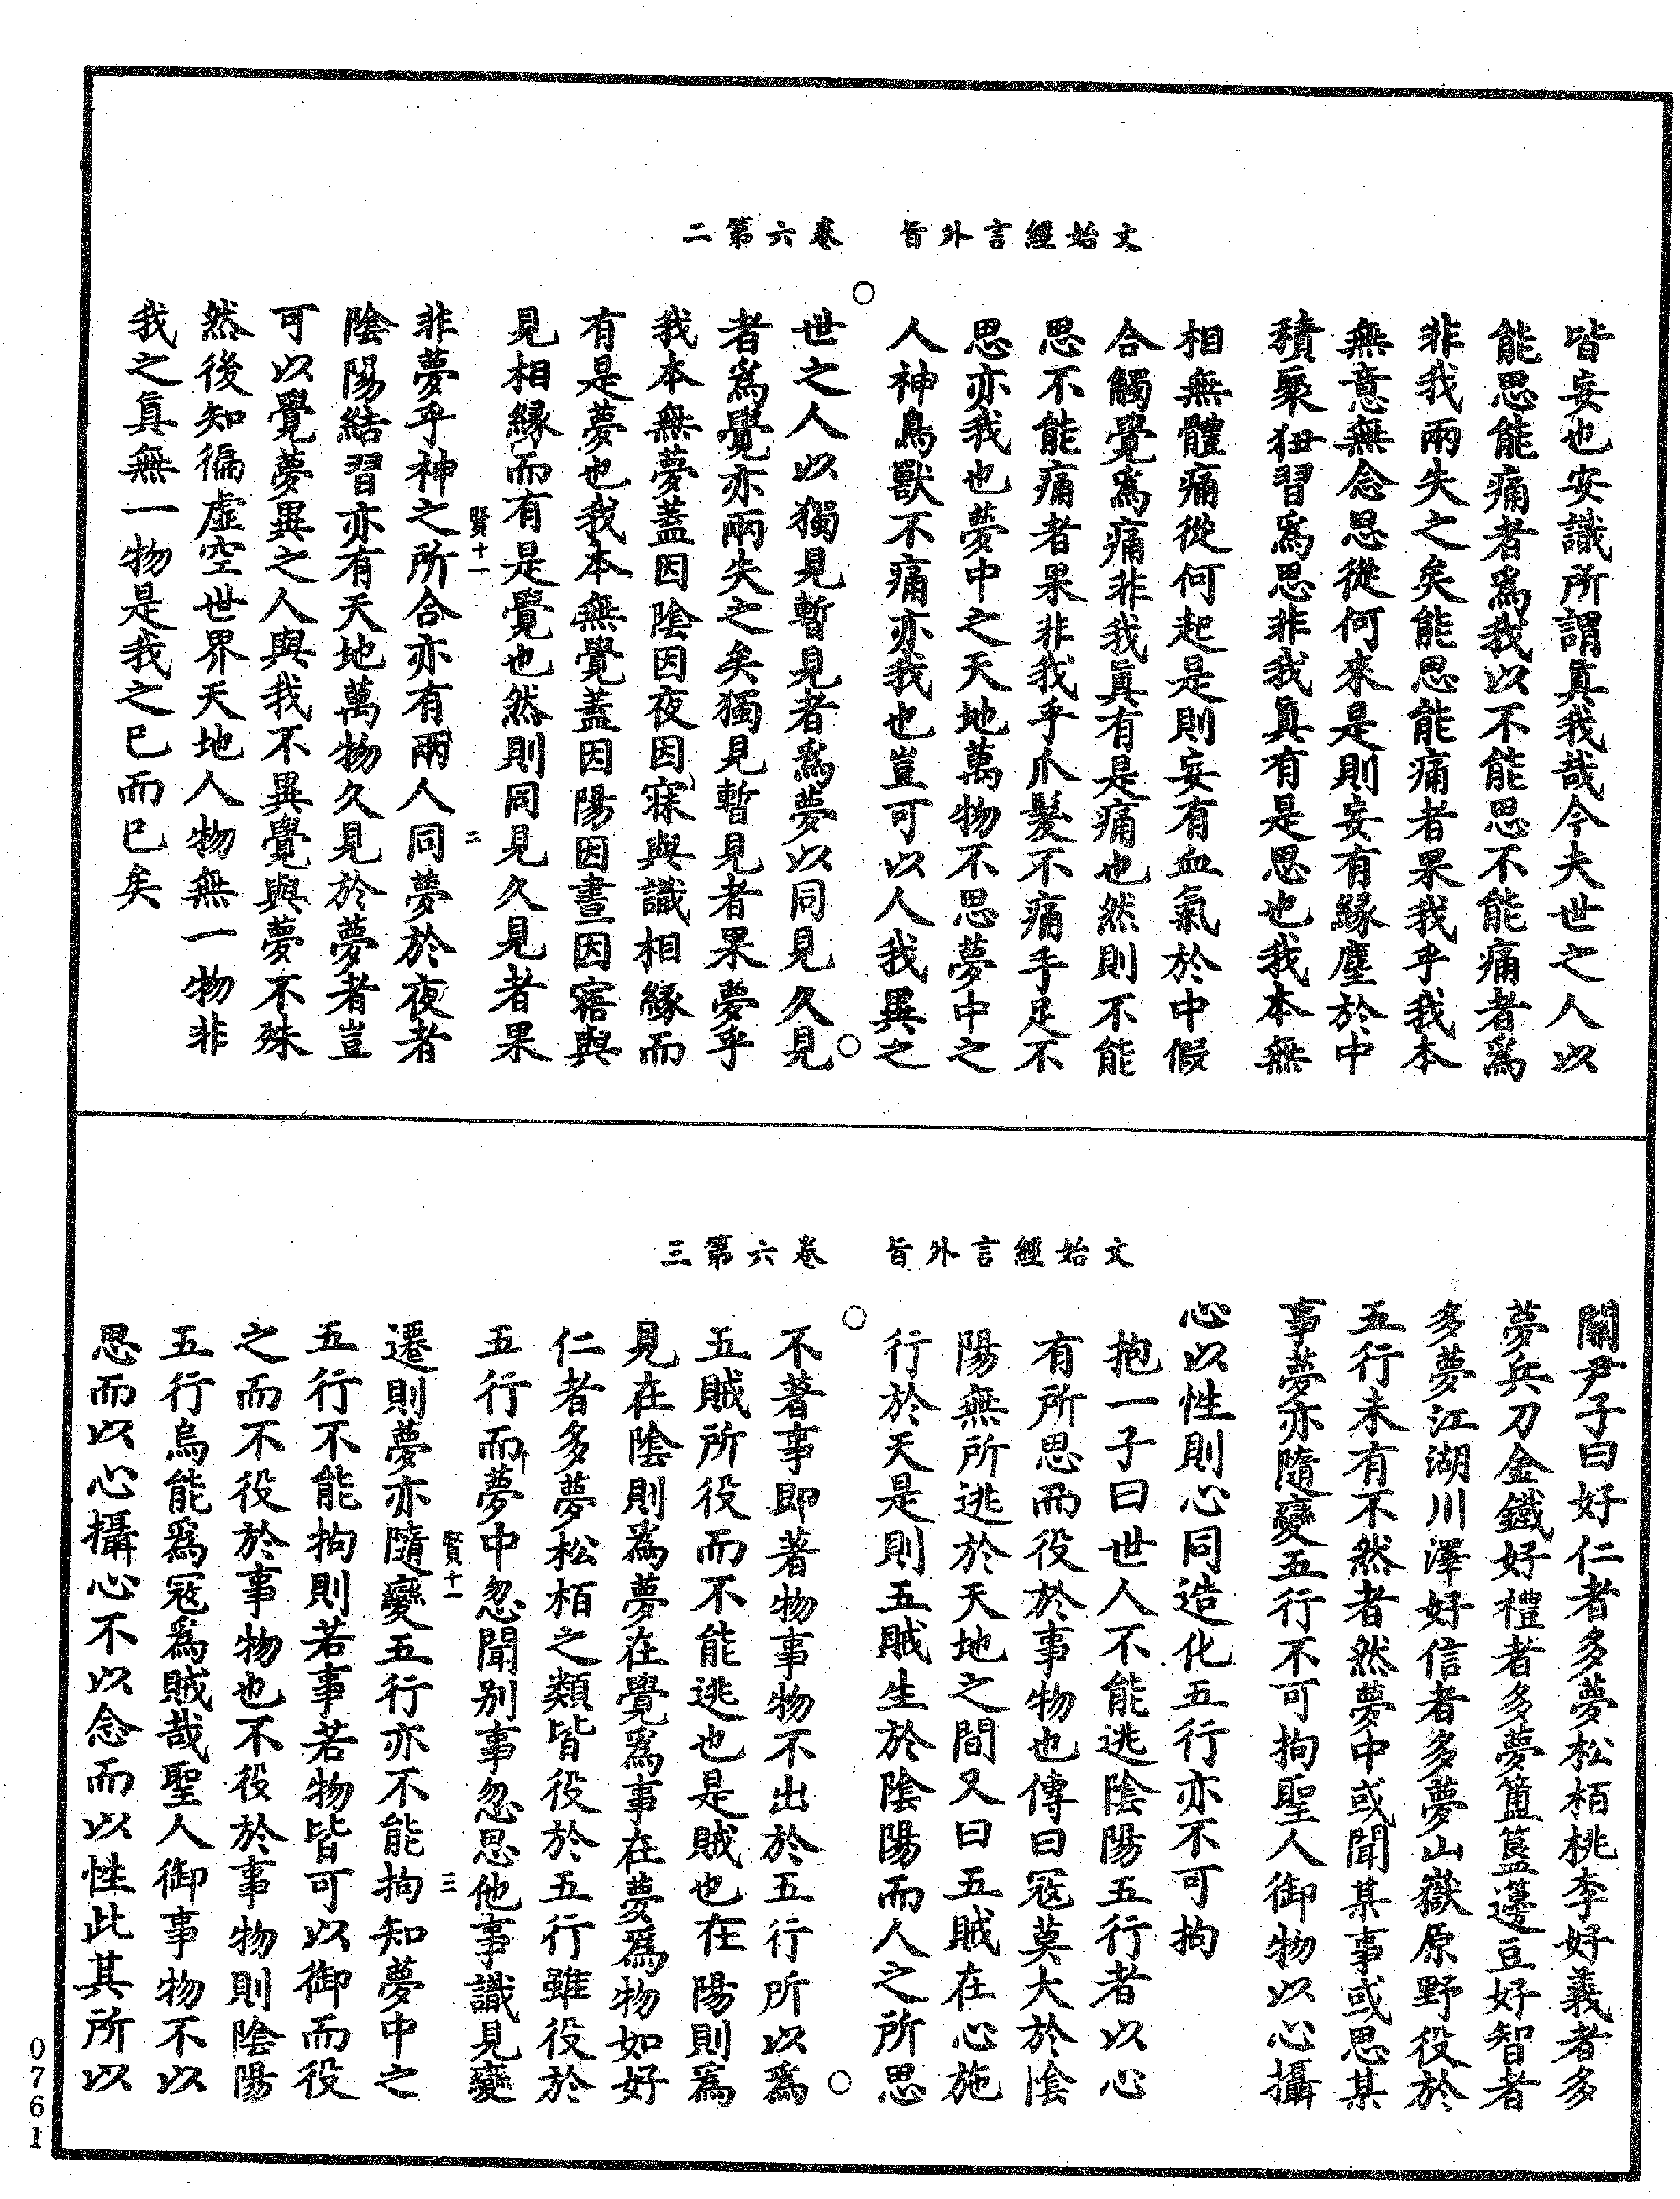 文始經言外旨　卷六第二
皆妄也安識所謂真我哉今夫世之人以
能思能痛者爲我以不能思不能痛者爲
非我兩失之矣能思能痛者果我乎我本
無意無念思從何來是則妄有緣塵於中
積聚狃習爲思非我真有是思也我本無
相無體痛從何起是則妄有血氣於中假
合觸覺爲痛非我真有是痛也然則不能
思不能痛者果非我乎爪髮不痛手足不
思亦我也夢中之天地萬物不思夢中之
人神鳥獸不痛亦我也豈可以人我異之
世之人以獨見暫見者爲夢以同見久見
者爲覺亦兩失之矣獨見暫見者果夢乎
我本無夢蓋因陰因夜因寐與識相緣而
有是夢也我本無覺蓋因陽因晝因寤與
見相緣而有是覺也然則同見久見者果
賢十一　二
非夢乎神之所合亦有兩人同夢於夜者
陰陽結習亦有天地萬物久見於夢者豈
可以覺夢異之人與我不異覺與夢不殊
然後知徧虛空世界天地人物無一物非
我之真無一物是我之己而已矣
文始經言外旨　卷六第三
關尹子曰好仁者多夢松栢桃李好義者多
夢兵刀金鐵好禮者多夢簠簋籩豆好智者
多夢江湖川澤好信者多夢山嶽原野役於
五行未有不然者然夢中或聞某事或思某
事夢亦隨變五行不可拘聖人御物以心攝
心以性則心同造化五行亦不可拘
抱一子曰世人不能逃陰陽五行者以心
有所思而役於事物也傳曰寇莫大於陰
陽無所逃於天地之間又曰五賊在心施
行於天是則五賊生於陰陽而人之所思
不著事即著物事物不出於五行所以爲
五賊所役而不能逃也是賊也在陽則爲
見在陰則爲夢在覺爲事在夢爲物如好
仁者多夢松栢之類皆役於五行雖役於
五行而夢中忽聞別事忽思他事識見變
賢十一　三
遷則夢亦隨變五行亦不能拘知夢中之
五行不能拘則若事若物皆可以御而役
之而不役於事物也不役於事物則陰陽
五行烏能爲寇爲賊哉聖人御事物不以
思而以心攝心不以念而以性此其所以
0761